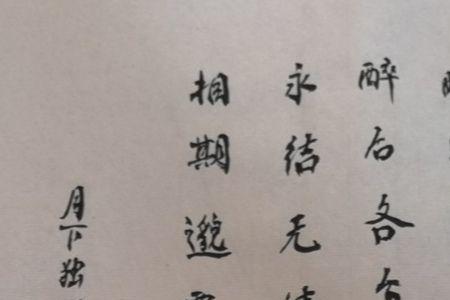 醉后各
永结无
相期邈
月下独